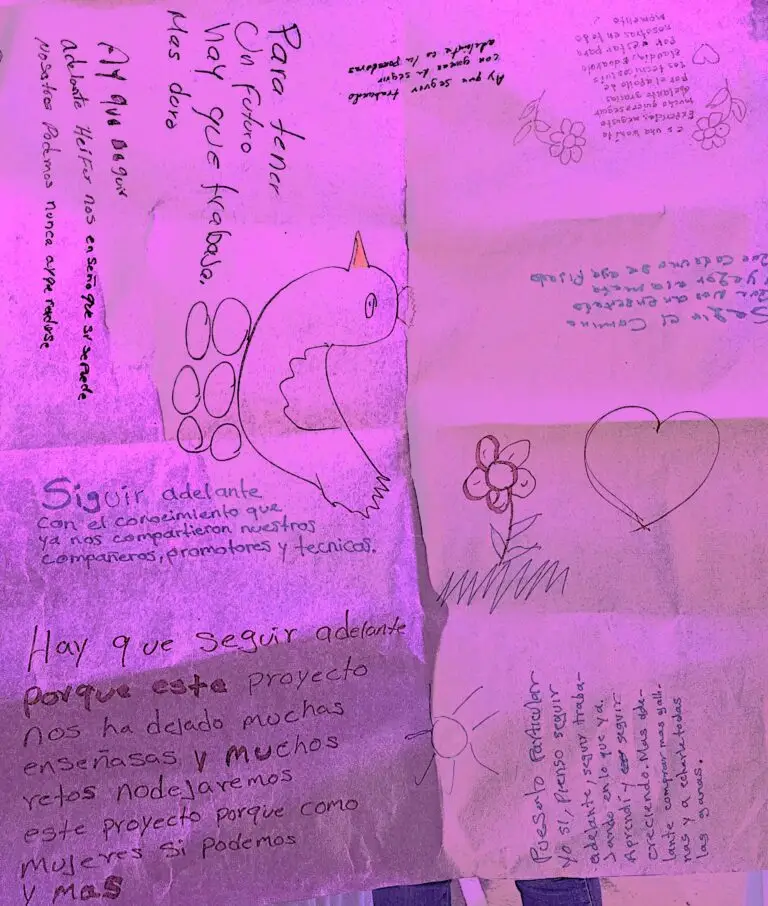 Para tener
Un futoro
hay que trabaja,
Mas dora
Ay que segir
adelante Heifer nos enseño que si se puede
nosotros Podemos nunca
Ay que seguir trabando
con ganas la segir
adelante es la
es una bonita
Experiencia, me gusto
mucho quiero seguir
adelante gracias
por el apollo de
los tecnicos
por estar para
nosotras en todo
momento
Segir el Camino
Que nos an enseñado
y yegar a la meta
Que Cada uno se aya Fijado
Siguir adelante
con el conocimiento que
ya nos compartieron nuestros
compañeros, promotores y tecnicos.
Hay que seguir adelante
porque este proyecto
nos ha dejado muchas
enseñasas y muchos
retos nodejaremos
este proyecto porque como
mujeres si podemos
y mas
Puesoto Particular
Yo si, Pienso seguir
adelante, seguir traba-
Jando en lo que ya
Aprendi y seguir
creciendo. Mas ade-
lante comprar mas galli-
nas y a echarle todas
las ganas.